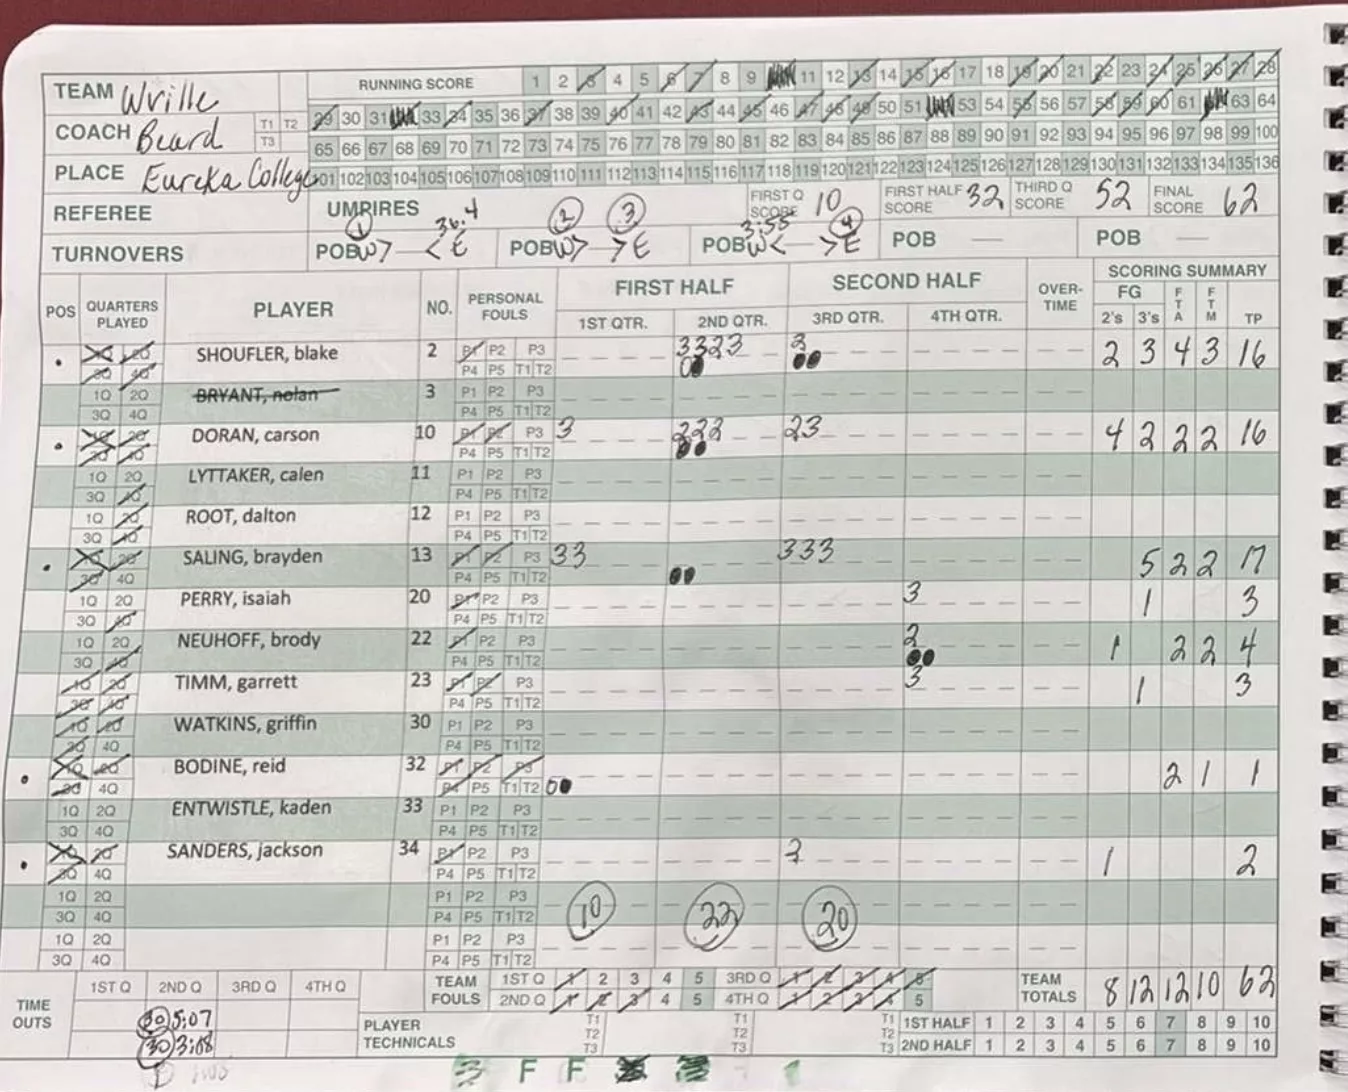 TEAM Wville RUNNING SCORE 1 2 3 4 5 6 7 8 9 11 12 13 14 15 16 17 18 19 20 21 22 23 24 25 26 27 28
29 30 31 33 34 35 36 37 38 39 40 41 42 43 44 45 46 47 48 49 50 51 53 54 55 56 57 58 59 60 61 63 64
COACH Beard T1 T2 T3
65 66 67 68 69 70 71 72 73 74 75 76 77 78 79 80 81 82 83 84 85 86 87 88 89 90 91 92 93 94 95 96 97 98 99 100
PLACE Eureka College 101 102 103 104 105 106 107 108 109 110 111 112 113 114 115 116 117 118 119 120 121 122 123 124 125 126 127 128 129 130 131 132 133 134 135 136
REFEREE UMPIRES FIRST Q SCORE 10 FIRST HALF SCORE 32 THIRD Q SCORE 52 FINAL SCORE 62
1 36.4 2 3 3:55 4
TURNOVERS POB W> — < E POB W> — > E POB W< — > E POB — POB —
POS QUARTERS PLAYED PLAYER NO. PERSONAL FOULS FIRST HALF SECOND HALF OVER-TIME SCORING SUMMARY
1ST QTR. 2ND QTR. 3RD QTR. 4TH QTR. FG 2's 3's FTA FTM TP
1Q 2Q SHOUFLER, blake 2 P1 P2 P3 3323 2 2 3 4 3 16
3Q 4Q P4 P5 T1 T2
1Q 2Q BRYANT, nolan 3 P1 P2 P3
3Q 4Q P4 P5 T1 T2
1Q 2Q DORAN, carson 10 P1 P2 P3 3 222 23 4 2 2 2 16
3Q 4Q P4 P5 T1 T2
1Q 2Q LYTTAKER, calen 11 P1 P2 P3
3Q 4Q P4 P5 T1 T2
1Q 2Q ROOT, dalton 12 P1 P2 P3
3Q 4Q P4 P5 T1 T2
1Q 2Q SALING, brayden 13 P1 P2 P3 33 333 5 2 2 17
3Q 4Q P4 P5 T1 T2
1Q 2Q PERRY, isaiah 20 P1 P2 P3 3 1 3
3Q 4Q P4 P5 T1 T2
1Q 2Q NEUHOFF, brody 22 P1 P2 P3 2 1 2 2 4
3Q 4Q P4 P5 T1 T2
1Q 2Q TIMM, garrett 23 P1 P2 P3 3 1 3
3Q 4Q P4 P5 T1 T2
1Q 2Q WATKINS, griffin 30 P1 P2 P3
3Q 4Q P4 P5 T1 T2
1Q 2Q BODINE, reid 32 P1 P2 P3 2 1 1
3Q 4Q P4 P5 T1 T2
1Q 2Q ENTWISTLE, kaden 33 P1 P2 P3
3Q 4Q P4 P5 T1 T2
1Q 2Q SANDERS, jackson 34 P1 P2 P3 2 1 2
3Q 4Q P4 P5 T1 T2
1Q 2Q P1 P2 P3
3Q 4Q P4 P5 T1 T2 10 22 20
1Q 2Q P1 P2 P3
3Q 4Q P4 P5 T1 T2
TIME OUTS 1ST Q 2ND Q 3RD Q 4TH Q TEAM FOULS 1ST Q 1 2 3 4 5 3RD Q 1 2 3 4 5 TEAM TOTALS 8 12 12 10 62
2ND Q 1 2 3 4 5 4TH Q 1 2 3 4 5
30 5:07 PLAYER TECHNICALS T1 T2 T3 T1 T2 T3 T1 T2 T3 1ST HALF 1 2 3 4 5 6 7 8 9 10
30 3:08 2ND HALF 1 2 3 4 5 6 7 8 9 10
F F